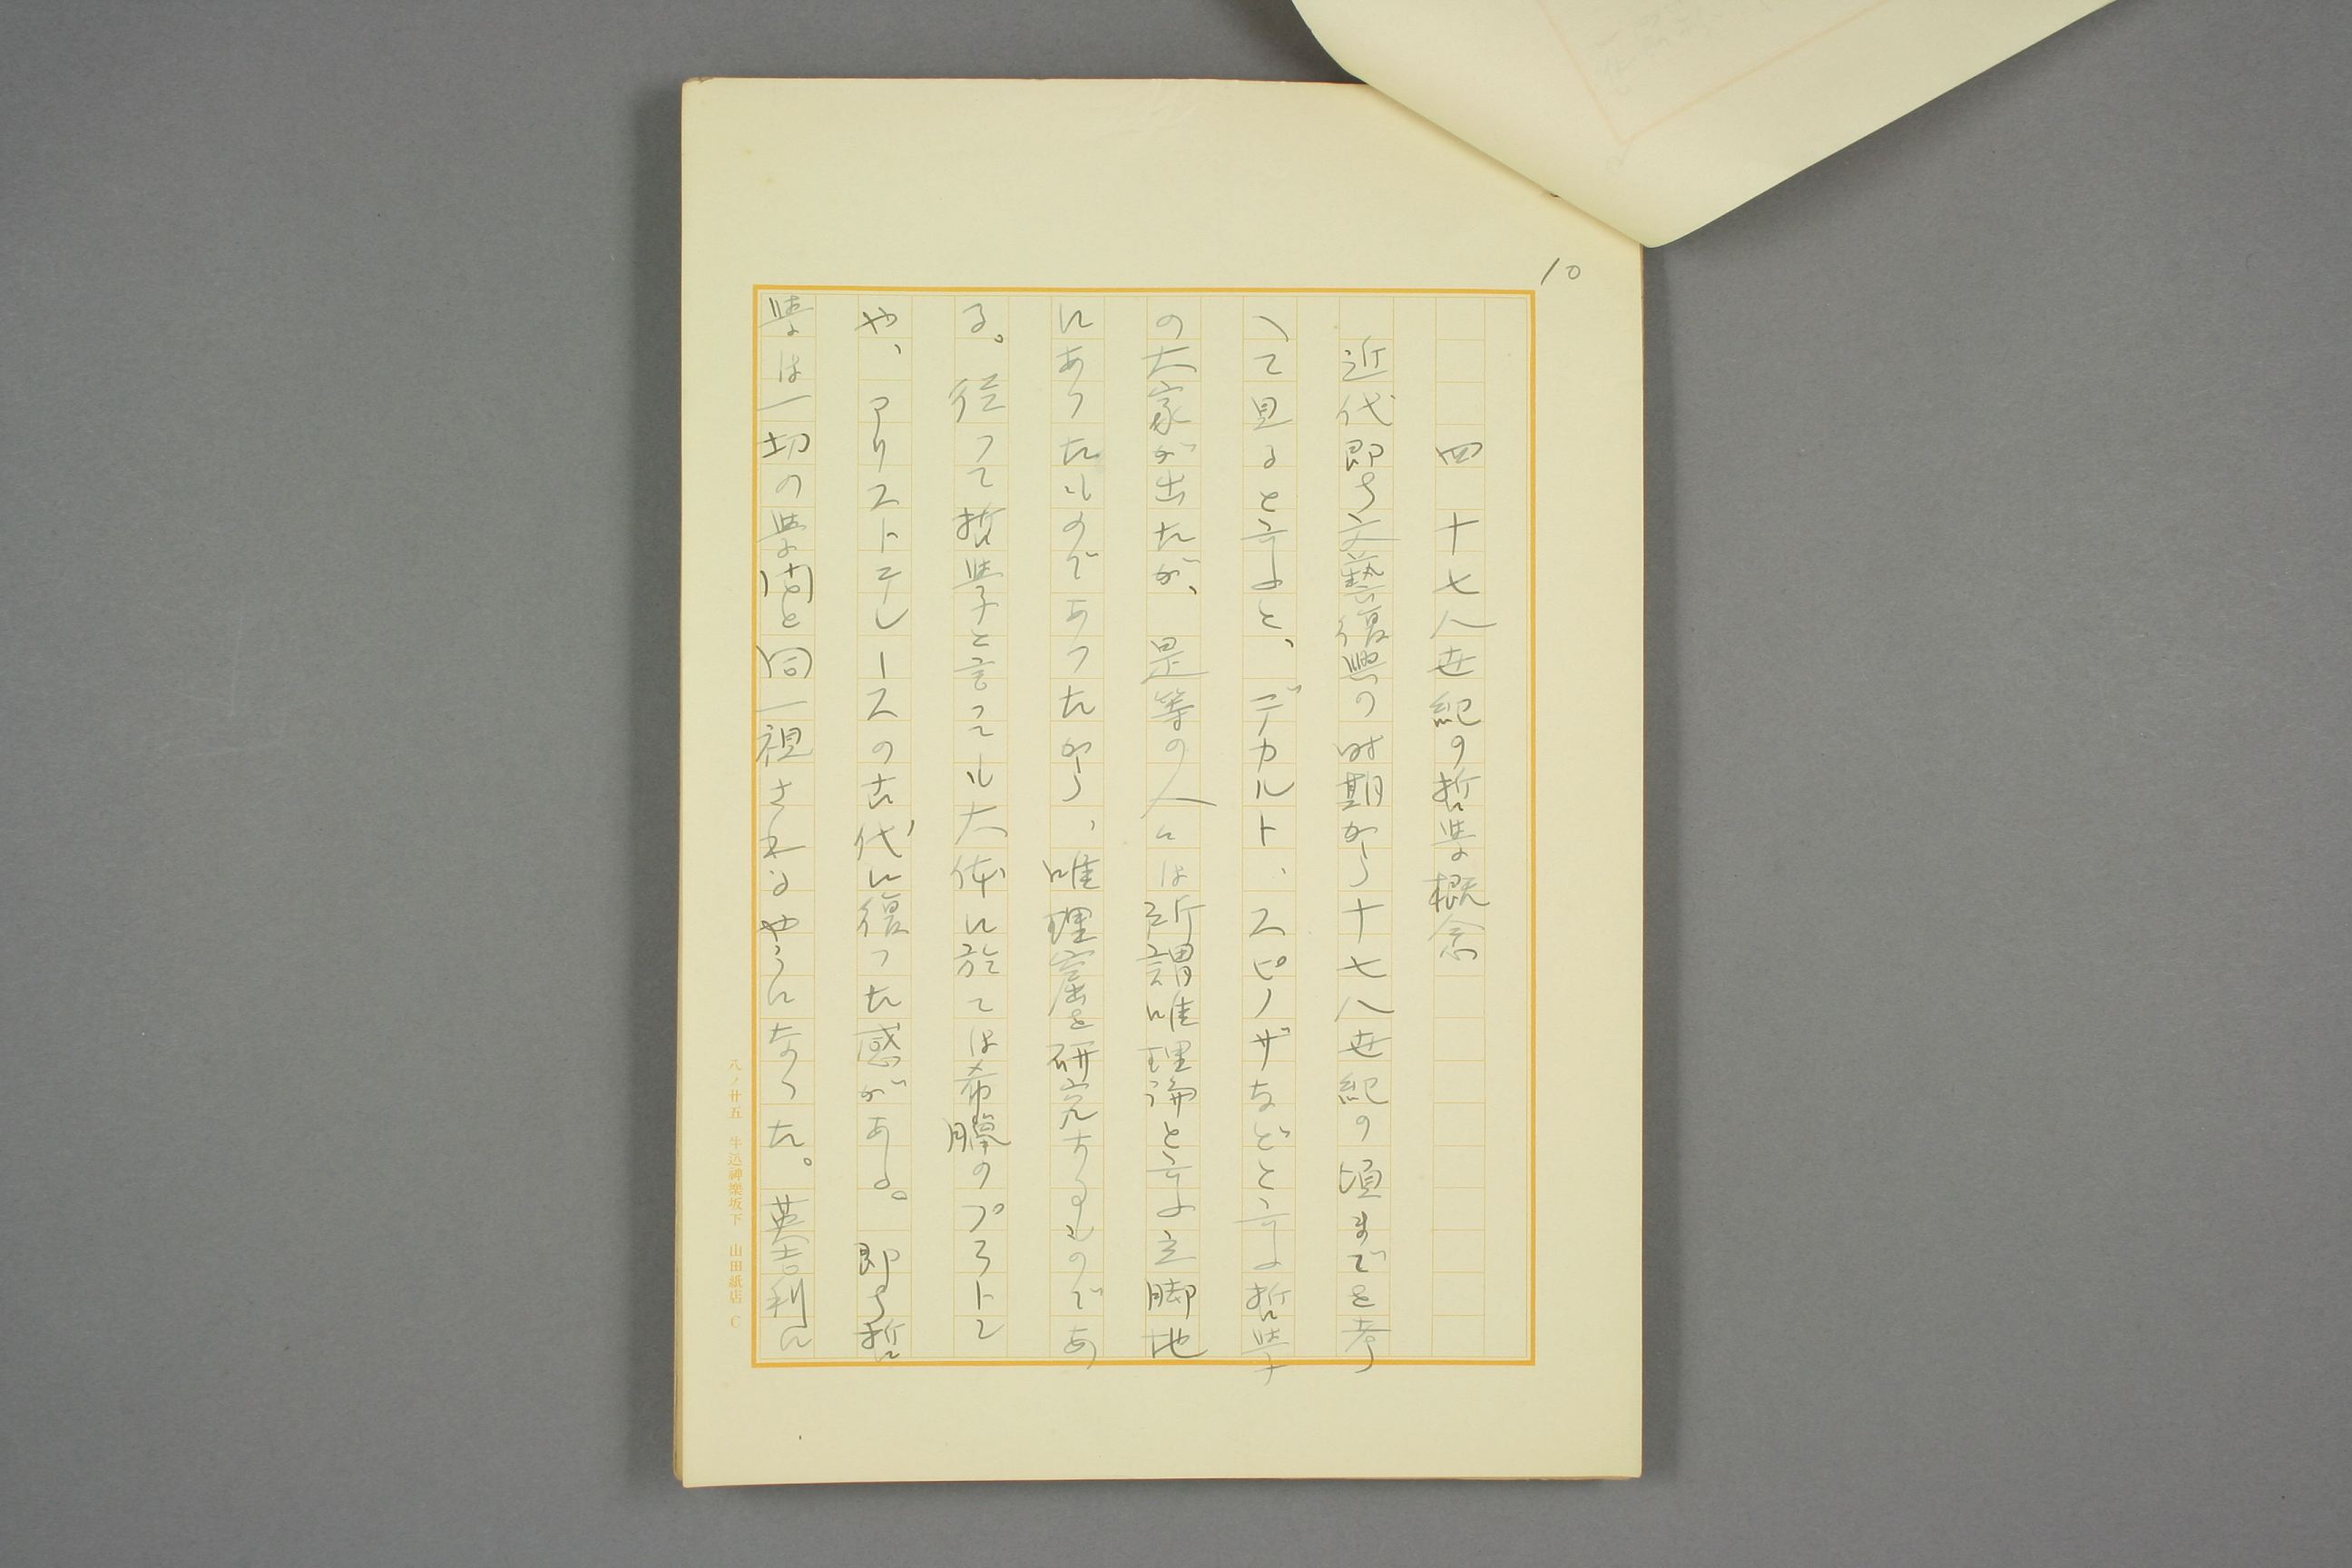 10
四 十七八世紀の哲学概念
近代即ち文藝復興の時期から十七八世紀の頃までを考
へて見ると云ふと、デカルト、スピノザなどと云ふ哲学
の大家が出たが、是等の人には所謂唯理論と云ふ立脚地
にあつたものであつたから、唯理窟を研究するものであ
る。従つて哲学と言つても大体に於ては希臘のプラトン
や、アリストテレースの古代に復つた感がある。即ち哲
学は一切の学問と同一視されるやうになつた。英吉利に
八ノ廿五 牛込神樂坂下 山田紙店 C